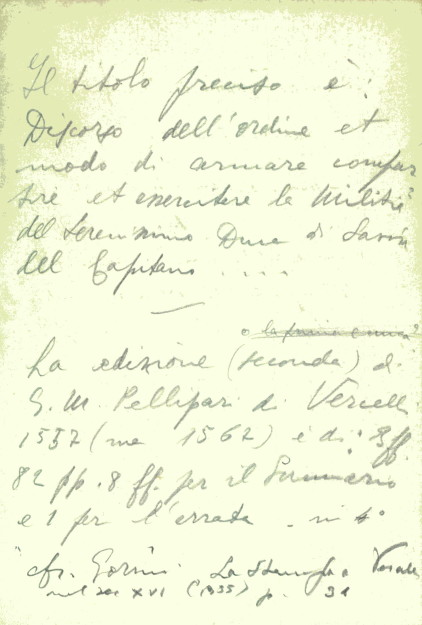 Il titolo preciso è:
Discorso dell'ordine et
modo di armare compar
tire et exercitare la Militia
del Serenissimo Duca di Savoia
del Capitano ....
o la prima e unica?
La edizione (seconda) di
G. M. Pellipari di Vercelli
1557 (ma 1562) è di 8 ff.
82 pp. 8 ff. per il Sommario
e 1 per l'errata . in 4°
cfr. Gorini La Stampa a
nel sec XVI (1935) p. 31